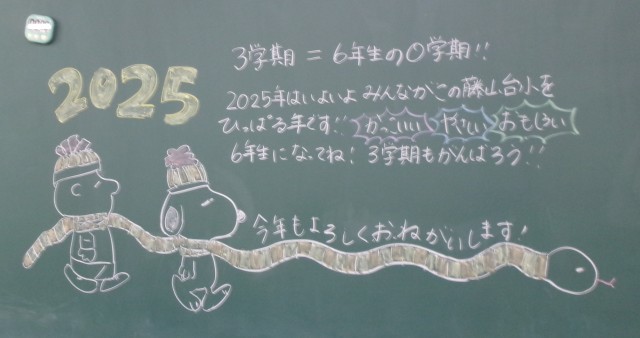 2025
3学期=6年生の0学期!!
2025年はいよいよみんながこの藤山台小を
ひっぱる年です!! かっこいい やさしい おもしろい
6年生になってね! 3学期もがんばろう!!
今年もよろしくおねがいします!